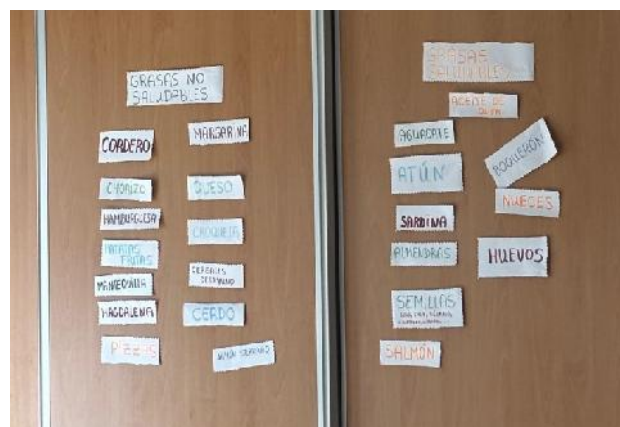 GRASAS NO
SALUDABLES
CORDERO
CHORIZO
HAMBURGUESA
PATATAS
FRITAS
MANTEQUILLA
MAGDALENA
PIZZAS
MARGARINA
QUESO
CROQUETA
CEREALES
DESAYUNO
CERDO
GRASAS
SALUDABLES
ACEITE DE
OLIVA
AGUACATE
ATÚN
SARDINA
ALMENDRAS
SEMILLAS
SALMÓN
BOQUERÓN
NUECES
HUEVOS